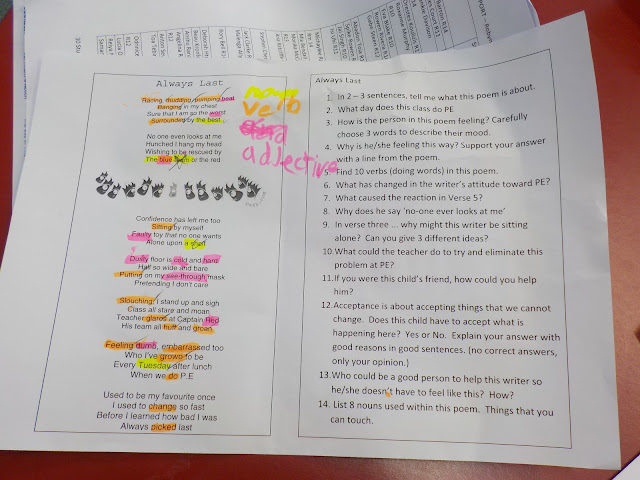 Always Last
Racing, thudding, pumping beat
Hanging in my chest
Sure that I am go the worst
Surrounded by the best
No one even looks at me
Hunched I hang my head
Wishing to be rescued by
The blue team or the red
Confidence has left me too
Sitting by myself
Faulty toy that no one wants
Alone upon a shelf
Dusty floor is cold and hard
Hall so wide and bare
Putting on my see-through mask
Pretending I don't care
Slouching I stand up and sigh
Class all stare and moan
Teacher glares at Captain Red
His team all huff and groan
Feeling dumb, embarrassed too
Who I've grown to be
Every Tuesday after lunch
When we do P.E
Used to be my favourite once
I used to change so fast
Before I learned how bad I was
Always picked last
noun
verb
adjective
Always Last
1. In 2 – 3 sentences, tell me what this poem is about.
2. What day does this class do PE
3. How is the person in this poem feeling? Carefully
choose 3 words to describe their mood.
4. Why is he/she feeling this way? Support your answer
with a line from the poem.
5. Find 10 verbs (doing words) in this poem.
6. What has changed in the writer's attitude toward PE?
7. What caused the reaction in Verse 5?
8. Why does he say 'no-one ever looks at me'
9. In verse three ... why might this writer be sitting
alone? Can you give 3 different ideas?
10. What could the teacher do to try and eliminate this
problem at PE?
11. If you were this child's friend, how could you help
him?
12. Acceptance is about accepting things that we cannot
change. Does this child have to accept what is
happening here? Yes or No. Explain your answer with
good reasons in good sentences. (no correct answers,
only your opinion.)
13. Who could be a good person to help this writer so
he/she doesn't have to feel like this? How?
14. List 8 nouns used within this poem. Things that you
can touch.